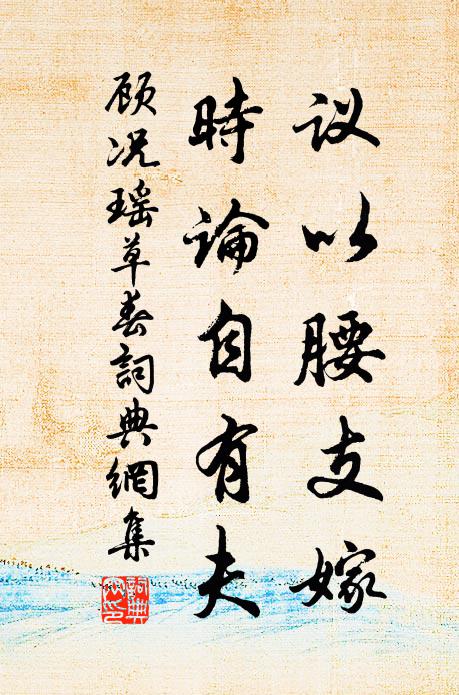 议以腰支嫁
時論自有夫
顾况瑶草春詞典網集